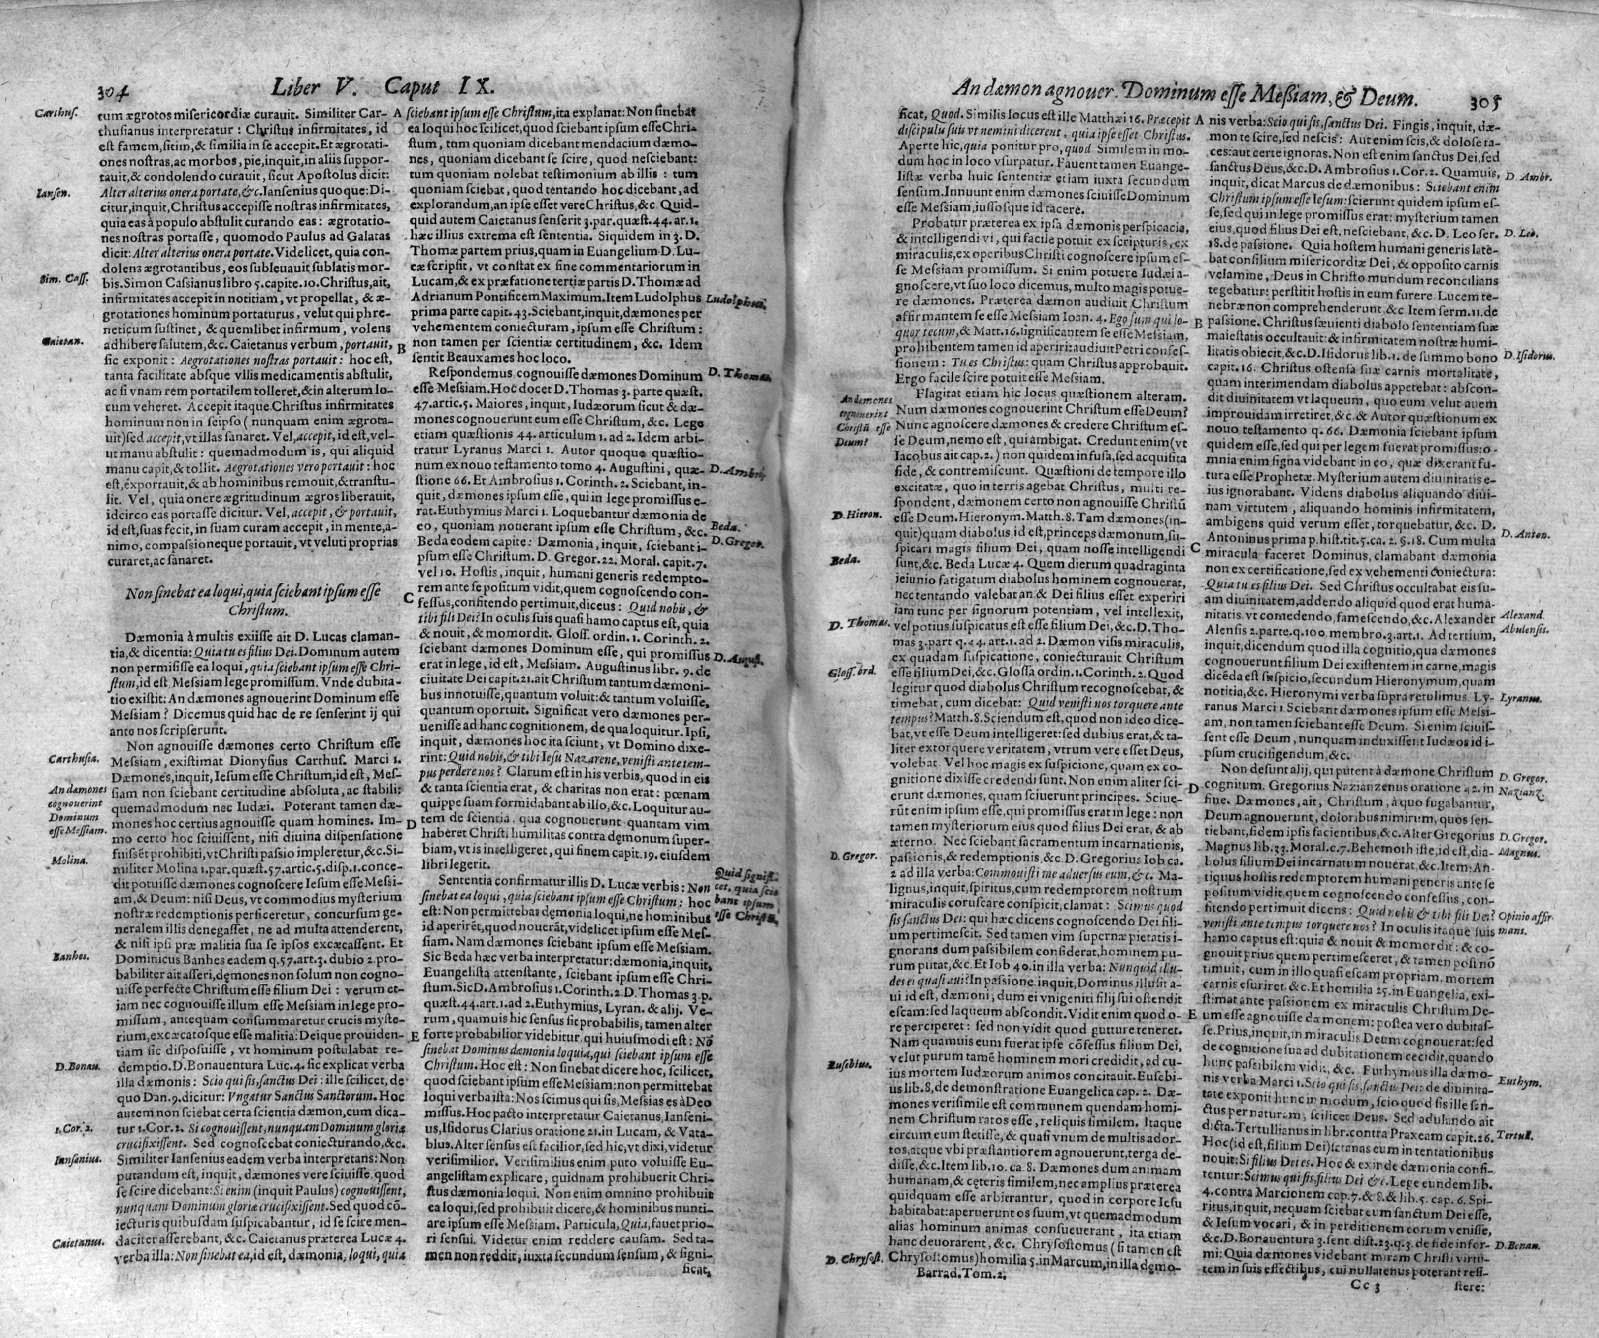 304 Liber V. Caput IX.
Carthus.
Iansen.
Sim. Cass.
Caietan.
Carthusia.
An dæmones
cognouerint
Dominum
esse Messiam.
Molina.
Banhes.
D. Bonau.
1. Cor. 2.
Iansenius.
Caietanus.
tum ægrotos misericordiæ curauit. Similiter Car-
thusianus interpretatur: Christus infirmitates, id
est famem, sitim, & similia in se accepit. Et ægrotati-
ones nostras, ac morbos, pie, inquit, in aliis suppor-
tauit, & condolendo curauit, sicut Apostolus dicit:
Alter alterius onera portate, &c. Iansenius quoque: Di-
citur, inquit, Christus accepisse nostras infirmitates,
quia eas à populo abstulit curando eas: ægrotatio-
nes nostras portasse, quomodo Paulus ad Galatas
dicit: Alter alterius onera portate. Videlicet, quia con-
dolens ægrotantibus, eos subleauit sublatis mor-
bis. Simon Cassianus libro 5. capite. 10. Christus, ait,
infirmitates accepit in notitiam, vt propellat, & æ-
grotationes hominum portaturus, velut qui phre-
neticum sustinet, & quemlibet infirmum, volens
adhibere salutem, &c. Caietanus verbum, portauit,
sic exponit: Aegrotationes nostras portauit: hoc est,
tanta facilitate absque vllis medicamentis abstulit,
ac si vnam rem portatilem tolleret, & in alterum lo-
cum veheret. Accepit itaque Christus infirmitates
hominum non in seipso (nunquam enim ægrota-
uit) sed accepit, vt illas sanaret. Vel, accepit, id est, vel-
ut manu abstulit: quemadmodum is, qui aliquid
manu capit, & tollit. Aegrotationes vero portauit: hoc
est, exportauit, & ab hominibus remouit, & transtu-
lit. Vel, quia onere ægritudinum ægros liberauit,
idcirco eas portasse dicitur. Vel, accepit, & portauit,
id est, suas fecit, in suam curam accepit, in mente, a-
nimo, compassioneque portauit, vt veluti proprias
curaret, ac sanaret.
Non sinebat ea loqui, quia sciebant ipsum esse
Christum.
Dæmonia à multis exiisse ait D. Lucas claman-
tia, & dicentia: Quia tu es filius Dei. Dominum autem
non permisisse ea loqui, quia sciebant ipsum esse Chri-
stum, id est Messiam lege promissum. Vnde dubita-
tio existit: An dæmones agnouerint Dominum esse
Messiam? Dicemus quid hac de re senserint ij qui
ante nos scripserunt.
Non agnouisse dæmones certo Christum esse
Messiam, existimat Dionysius Carthus. Marci 1.
Dæmones, inquit, Iesum esse Christum, id est, Mes-
siam non sciebant certitudine absoluta, ac stabili:
quemadmodum nec Iudæi. Poterant tamen dæ-
mones hoc certius agnouisse quam homines. Im-
mo certo hoc sciuissent, nisi diuina dispensatione
fuissent prohibiti, vt Christi passio impleretur, &c. Si-
militer Molina 1. par. quæst. 57. artic. 5. disp. 1. conce-
dit potuisse dæmones cognoscere Iesum esse Messi-
am, & Deum: nisi Deus, vt commodius mysterium
nostræ redemptionis perficeretur, concursum ge-
neralem illis denegasset, ne ad multa attenderent,
& nisi ipsi præ malitia sua se ipsos excæcassent. Et
Dominicus Banhes eadem q. 57. art. 3. dubio 2. pro-
babiliter ait asseri, dęmones non solum non cogno-
uisse perfecte Christum esse filium Dei: verum et-
iam nec cognouisse illum esse Messiam in lege pro-
missum, antequam consummaretur crucis myste-
rium, excæcatosque esse malitia: Deique prouiden-
tiam sic disposuisse, vt hominum postulabat re-
demptio. D. Bonauentura Luc. 4. sic explicat verba
illa dæmonis: Scio qui sis, sanctus Dei: ille scilicet, de
quo Dan. 9. dicitur: Vngatur Sanctus Sanctorum. Hoc
autem non sciebat certa scientia dæmon, cum dica-
tur 1. Cor. 2. Si cognouissent, nunquam Dominum gloriæ
crucifixissent. Sed cognoscebat coniecturando, &c.
Similiter Iansenius eadem verba interpretans: Non
putandum est, inquit, dæmones vere sciuisse, quod
se scire dicebant: Si enim (inquit Paulus) cognouissent,
nunquam Dominum gloriæ crucifixissent. Sed quod cō-
iecturis quibusdam suspicabantur, id se scire men-
daciter asserebant, &c. Caietanus præterea Lucæ 4.
verba illa: Non sinebat ea, id est, dæmonia, loqui, quia
A
B
C
D
E
sciebant ipsum esse Christum, ita explanat: Non sinebat
ea loqui hoc scilicet, quod sciebant ipsum esse Chri-
stum, tum quoniam dicebant mendacium dæmo-
nes, quoniam dicebant se scire, quod nesciebant:
tum quoniam nolebat testimonium ab illis: tum
quoniam sciebat, quod tentando hoc dicebant, ad
explorandum, an ipse esset vere Christus, &c. Quid-
quid autem Caietanus senserit 3. par. quæst. 44. ar. 1.
hæc illius extrema est sententia. Siquidem in 3. D.
Thomæ partem prius, quam in Euangelium D. Lu-
cæ scripsit, vt constat ex fine commentariorum in
Lucam, & ex præfatione tertiæ partis D. Thomæ ad
Adrianum Pontificem Maximum. Item Ludolphus
prima parte capit. 43. Sciebant, inquit, dæmones per
vehementem coniecturam, ipsum esse Christum:
non tamen per scientiæ certitudinem, &c. Idem
sentit Beauxames hoc loco.
Respondemus cognouisse dæmones Dominum
esse Messiam. Hoc docet D. Thomas 3. parte quæst.
47. artic. 5. Maiores, inquit, Iudæorum sicut & dæ-
mones cognouerunt eum esse Christum, &c. Lege
etiam quæstionis 44. articulum 1. ad 2. Idem arbi-
tratur Lyranus Marci 1. Autor quoque quæstio-
num ex nouo testamento tomo 4. Augustini, quæ-
stione 66. Et Ambrosius 1. Corinth. 2. Sciebant, in-
quit, dæmones ipsum esse, qui in lege promissus e-
rat. Euthymius Marci 1. Loquebantur dæmonia de
eo, quoniam nouerant ipsum esse Christum, &c.
Beda eodem capite: Dæmonia, inquit, sciebant i-
psum esse Christum. D. Gregor. 22. Moral. capit. 7.
vel 10. Hostis, inquit, humani generis redempto-
rem ante se positum vidit, quem cognoscendo con-
fessus, confitendo pertimuit, dicens: Quid nobis, &
tibi fili Dei? In oculis suis quasi hamo captus est, quia
& nouit, & momordit. Gloss. ordin. 1. Corinth. 2.
sciebant dæmones Dominum esse, qui promissus
erat in lege, id est, Messiam. Augustinus libr. 9. de
ciuitate Dei capit. 21. ait Christum tantum dæmoni-
bus innotuisse, quantum voluit: & tantum voluisse,
quantum oportuit. Significat vero dæmones per-
uenisse ad hanc cognitionem, de qua loquitur. Ipsi,
inquit, dæmones hoc ita sciunt, vt Domino dixe-
rint: Quid nobis, & tibi Iesu Nazarene, venisti ante tem-
pus perdere nos? Clarum est in his verbis, quod in eis
& tanta scientia erat, & charitas non erat: pœnam
quippe suam formidabant ab illo, &c. Loquitur au-
tem de scientia, qua cognouerunt quantam vim
haberet Christi humilitas contra dęmonum super-
biam, vt is intelliget, qui finem capit. 19. eiusdem
libri legerit.
Sententia confirmatur illis D. Lucæ verbis: Non
sinebat ea loqui, quia sciebant ipsum esse Christum: hoc
est: Non permittebat dęmonia loqui, ne hominibus
id aperirēt, quod nouerāt, videlicet ipsum esse Mes-
siam. Nam dæmones sciebant ipsum esse Messiam.
Sic Beda hæc verba interpretatur: dæmonia, inquit,
Euangelista attestante, sciebant ipsum esse Chri-
stum. Sic D. Ambrosius 1. Corinth. 2. D. Thomas 3. p.
quæst. 44. art. 1. ad 2. Euthymius, Lyran. & alij. Ve-
rum, quamuis hic sensus sit probabilis, tamen alter
forte probabilior videbitur, qui huiusmodi est: Nō
sinebat Dominus dæmonia loquia, qui sciebant ipsum esse
Christum. Hoc est: Non sinebat dicere hoc, scilicet,
quod sciebant ipsum esse Messiam: non permittebat
loqui verba ista: Nos scimus qui sis, Messias es à Deo
missus. Hoc pacto interpretatur Caietanus, Ianseni-
us, Isidorus Clarius oratione 21. in Lucam, & Vata-
blus. Alter sensus est facilior, sed hic, vt dixi, videtur
verisimilior. Verisimilius enim puto voluisse Eu-
angelistam explicare, quidnam prohibuerit Chri-
stus dæmonia loqui. Non enim omnino prohibuit
ea loqui, sed prohibuit dicere, & hominibus nunti-
are ipsum esse Messiam. Particula, Quia, fauet prio-
ri sensui. Videtur enim reddere causam. Sed ta-
men non reddit, iuxta secundum sensum, & signi-
ficat,
Ludolphus.
D. Thomas.
D. Ambros.
Beda.
D. Gregor.
D. August.
Quid signifi-
cet, quia scie
bant ipsum
esse Christū.
An dæmon agnouer. Dominum esse Messiam, & Deum. 305
An dæmones
cognouerint
Christū esse
Deum?
D. Hieron.
Beda.
D. Thomas.
Gloss. ord.
D. Gregor.
Eusebius.
D. Chrysost.
ficat, Quod. Similis locus est ille Matthæi 16. Præcepit
discipulis suis vt nemini dicerent, quia ipse esset Christus.
Aperte hic, quia ponitur pro, quod Similem in mo-
dum hoc in loco vsurpatur. Fauent tamen Euange-
listæ verba huic sententiæ etiam iuxta secundum
sensum. Innuunt enim dæmones sciuisse Dominum
esse Messiam, iussosque id tacere.
Probatur præterea ex ipsa dæmonis perspicacia,
& intelligendi vi, qui facile potuit ex scripturis, ex
miraculis, ex operibus Christi cognoscere ipsum es-
se Messiam promissum. Si enim potuere Iudæi a-
gnoscere, vt suo loco dicemus, multo magis potue-
re dæmones. Præterea dæmon audiuit Christum
affirmantem se esse Messiam Ioan. 4. Ego sum qui lo-
quor tecum, & Matt. 16. significantem se esse Messiam,
prohibentem tamen id aperiri: audiuit Petri confes-
sionem: Tu es Christus: quam Christus approbauit.
Ergo facile scire potuit esse Messiam.
Flagitat etiam hic locus quæstionem alteram.
Num dæmones cognouerint Christum esse Deum?
Nunc agnoscere dæmones & credere Christum es-
se Deum, nemo est, qui ambigat. Credunt enim (vt
Iacobus ait cap. 2.) non quidem infusa, sed acquisita
fide, & contremiscunt. Quæstioni de tempore illo
excitatæ, quo in terris agebat Christus, multi re-
spondent, dæmonem certo non agnouisse Christū
esse Deum. Hieronym. Matth. 8. Tam dæmones (in-
quit) quam diabolus id est, princeps dæmonum, su-
spicari magis filium Dei, quam nosse intelligendi
sunt, &c. Beda Lucæ 4. Quem dierum quadraginta
ieiunio fatigatum diabolus hominem cognouerat,
nec tentando valebat an & Dei filius esset experiri
iam tunc per signorum potentiam, vel intellexit,
vel potius suspicatus est esse filium Dei, &c. D. Tho-
mas 3. part q. 44. art. 1. ad 2. Dæmon visis miraculis,
ex quadam suspicatione, coniecturauit Christum
esse filium Dei, &c. Glossa ordin. 1. Corinth. 2. Quod
legitur quod diabolus Christum recognoscebat, &
timebat, cum dicebat: Quid venisti nos torquere ante
tempus? Matth. 8. Sciendum est, quod non ideo dice-
bat, vt esse Deum intelligeret: sed dubius erat, & ta-
liter extorquere veritatem, vtrum vere esset Deus,
volebat. Vel hoc magis ex suspicione, quam ex co-
gnitione dixisse credendi sunt. Non enim aliter sci-
erunt dæmones, quam sciuerunt principes. Sciue-
rūt enim ipsum esse, qui promissus erat in lege: non
tamen mysteriorum eius quod filius Dei erat, & ab
æterno. Nec sciebant sacramentum incarnationis,
passionis, & redemptionis, &c D. Gregorius Iob ca.
2 ad illa verba: Commouisti me aduersus eum, &c. Ma-
lignus, inquit, spiritus, cum redemptorem nostrum
miraculis coruscare conspicit, clamat: Scimus quod
sis sanctus Dei: qui hæc dicens cognoscendo Dei fili-
um pertimescit. Sed tamen vim supernæ pietatis i-
gnorans dum passibilem considerat, hominem pu-
rum putat, &c. Et Iob 40. in illa verba: Nunquid illu-
des ei quasi aui? In passione, inquit, Dominus illusit a-
ui id est, dæmoni; dum ei vnigeniti filij sui ostendit
escam: sed laqueum abscondit. Vidit enim quod o-
re perciperet: sed non vidit quod gutture teneret.
Nam quamuis eum fuerat ipse cōfessus filium Dei,
velut purum tamē hominem mori credidit, ad cu-
ius mortem Iudæorum animos concitauit. Eusebi-
us lib. 8, de demonstratione Euangelica cap. 2. Dæ-
mones verisimile est communem quendam homi-
nem Christum ratos esse, reliquis similem. Itaque
circum eum stetisse, & quasi vnum de multis ador-
tos, atque vbi præstantiorem agnouerunt, terga de-
disse, &c. Item lib. 10. ca. 8. Dæmones dum animam
humanam, & cęteris similem, nec amplius præterea
quidquam esse arbitrantur, quod in corpore Iesu
habitabat: aperuerunt os suum, vt quemadmodum
alias hominum animas consueuerant, ita etiam
hanc deuorarent, &c. Chrysostomus (si tamen est
Chrysostomus) homilia 5. in Marcum, in illa dęmo-
Barrad. Tom. 2.
A
B
C
D
E
nis verba: Scio qui sis, sanctus Dei. Fingis, inquit, dæ-
mon te scire, sed nescis: Aut enim scis, & dolose ta-
ces: aut certe ignoras. Non est enim sanctus Dei, sed
sanctus Deus, &c. D. Ambrosius 1. Cor. 2. Quamuis,
inquit, dicat Marcus de dæmonibus: Sciebant enim
Christum ipsum esse Iesum: scierunt quidem ipsum es-
se, sed qui in lege promissus erat: mysterium tamen
eius, quod filius Dei est, nesciebant, &c. D. Leo ser.
18. de passione. Quia hostem humani generis late-
bat consilium misericordiæ Dei, & opposito carnis
velamine, Deus in Christo mundum reconcilians
tegebatur: perstitit hostis in eum furere. Lucem te-
nebræ non comprehenderunt &c Item serm. 11. de
passione. Christus sæuienti diabolo sententiam suæ
maiestatis occultauit: & infirmitatem nostræ humi-
litatis obiecit, &c. D. Isidorus lib. 1. de summo bono
capit. 16. Christus ostensa suæ carnis mortalitate,
quam interimendam diabolus appetebat: abscon-
dit diuinitatem vt laqueum, quo eum velut auem
improuidam irretiret, &c. & Autor quæstionum ex
nouo testamento q. 66. Dæmonia sciebant ipsum
quidem esse, sed qui per legem fuerat promissus: o-
mnia enim signa videbant in eo, quæ dixerant fu-
tura esse Prophetæ. Mysterium autem diuinitatis e-
ius ignorabant. Videns diabolus aliquando diui-
nam virtutem, aliquando hominis infirmitatem,
ambigens quid verum esset, torquebatur, &c. D.
Antoninus prima p. hist. tit. 5. ca. 2. §. 18. Cum multa
miracula faceret Dominus, clamabant dæmonia
non ex certificatione, sed ex vehementi coniectura:
Quia tu es filius Dei. Sed Christus occultabat eis su-
am diuinitatem, addendo aliquid quod erat huma-
nitatis vt comedendo, famescendo, &c. Alexander
Alensis 2. parte. q. 100. membro. 3. art. 1. Ad tertium,
inquit, dicendum quod illa cognitio, qua dæmones
cognouerunt filium Dei existentem in carne, magis
dicēda est suspicio, secundum Hieronymum, quam
notitia, &c. Hieronymi verba supra retulimus Ly-
ranus Marci 1. Sciebant dæmones ipsum esse Messi-
am, non tamen sciebant esse Deum. Si enim sciuis-
sent esse Deum, nunquam induxissent Iudæos id i-
psum crucifigendum, &c.
Non desunt alij, qui putent à dæmone Christum
cognitum. Gregorius Nazianzenus oratione 42. in
fine. Dæmones, ait, Christum, à quo fugabantur,
Deum agnouerunt, doloribus nimirum, quos sen-
tiebant, fidem ipsis facientibus, &c. Alter Gregorius
Magnus lib. 33. Moral. c. 7. Behemoth iste, id est, dia-
bolus filium Dei incarnatum nouerat, &c. Item: An-
tiquus hostis redemptorem humani generis ante se
positum vidit, quem cognoscendo confessus, con-
fitendo pertimuit dicens: Quid nobis & tibi fili Dei?
venisti ante tempus torquere nos? In oculis itaque suis
hamo captus est: quia & nouit & momordit: & co-
gnouit prius quem pertimesceret, & tamen post nō
timuit, cum in illo quasi escam propriam, mortem
carnis esuriret. &c. Et homilia 25. in Euangelia, exi-
stimat ante passionem ex miraculis Christum De-
um esse agnouisse dæmonem: postea vero dubitas-
se. Prius, inquit, in miraculis Deum cognouerat: sed
de cognitione sua ad dubitationem cecidit, quando
hunc passibilem vidit, &c. Euthymius illa dæmo-
nis verba Marci 1. Scio qui sis, sanctus Dei: de diuinita-
te exponit hunc in modum, scio quod sis ille san-
ctus per naturam, scilicet Deus. Sed adulando ait
dicta. Tertullianus in libr. contra Praxeam capit. 26.
Hoc (id est, filium Dei) satanas eum in tentationibus
nouit: Si filius Dei es. Hoc & exinde dæmonia confi-
tentur: Scimus qui sis, filius Dei &c. Lege eundem lib.
4. contra Marcionem cap. 7. & 8. & lib. 5. cap. 6. Spi-
ritus, inquit, nequam sciebat eum sanctum Dei esse,
& Iesum vocari, & in perditionem eorum venisse,
&c. D. Bonauentura 3. sent. dist. 23. q. 3. de fide infor-
mi: Quia dæmones videbant miram Christi virtu-
tem in suis effectibus, cui nullatenus poterant resi-
Cc 3 stere:
D. Ambr.
D. Leo.
D. Isidorus.
D. Anton.
Alexand.
Abulensis.
Lyranus.
D. Gregor.
Nazianz.
D. Gregor.
Magnus.
Opinio affir
mans.
Euthym.
Tertull.
D. Bonau.